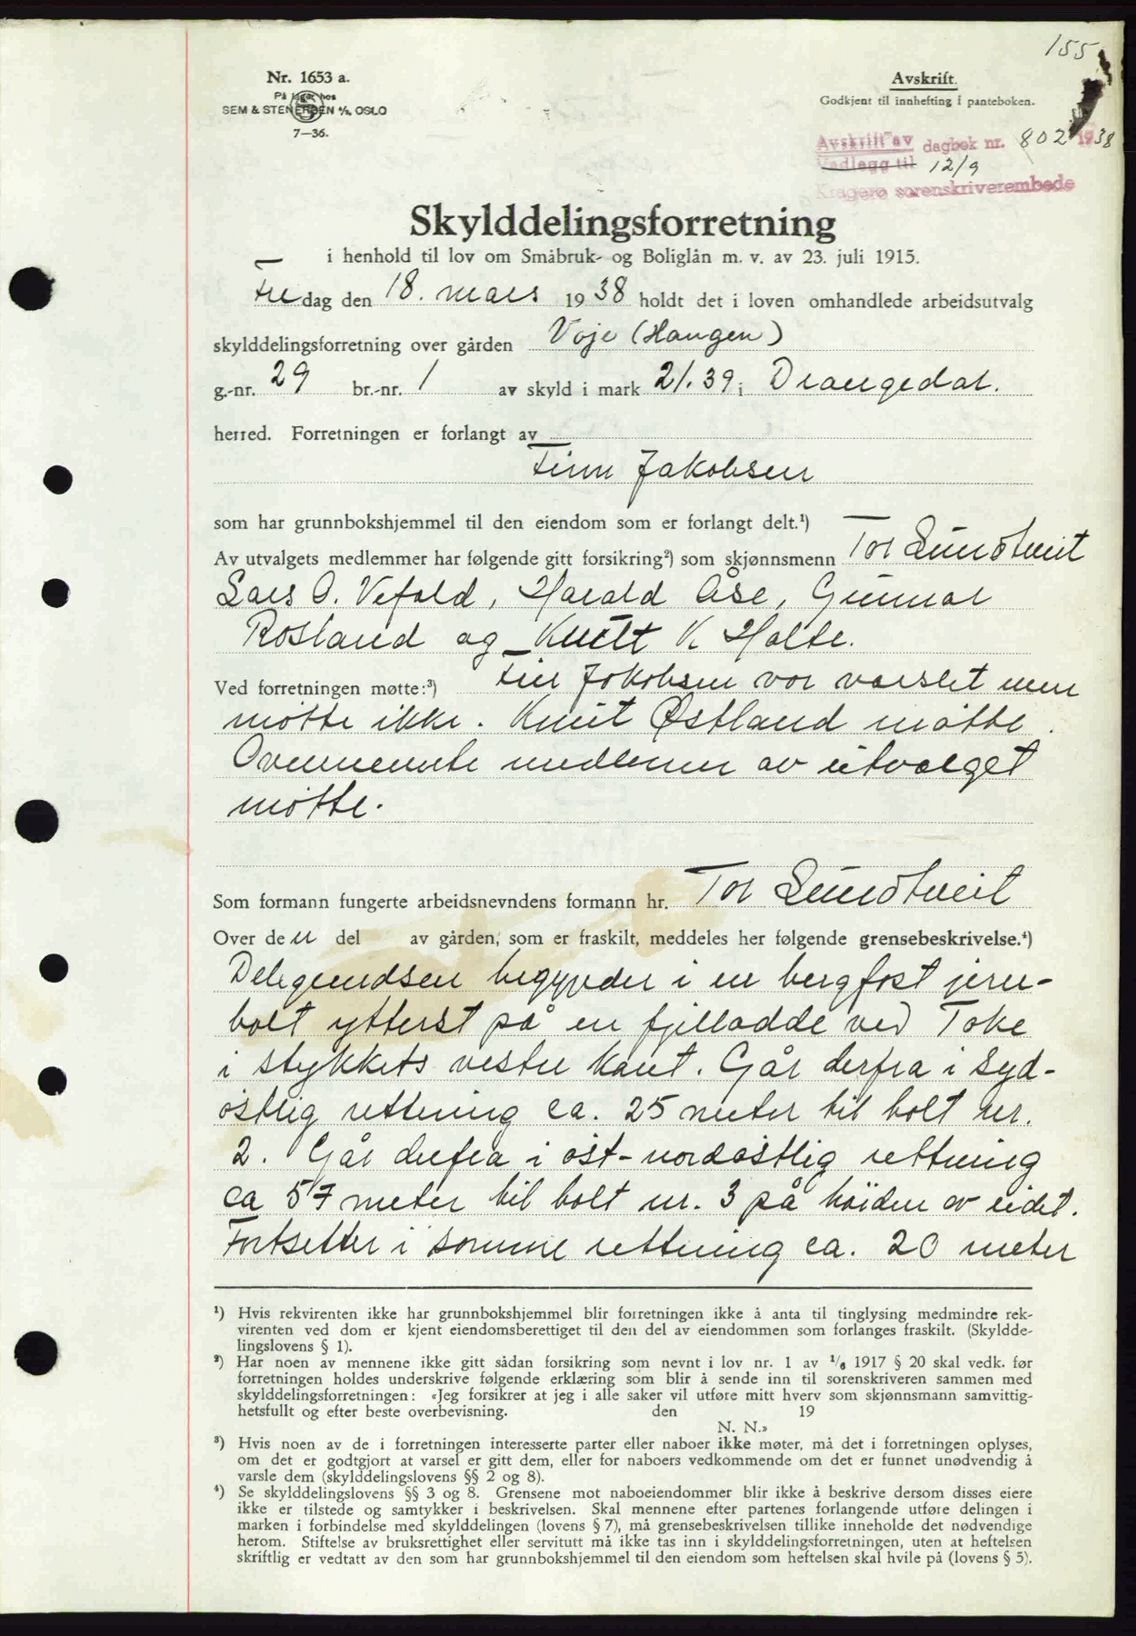 155
Nr. 1653 a.
På lager hos
SEM & STENERSEN A/S, OSLO
7—36.
Avskrift.
Godkjent til innhefting i panteboken.
Avskrift av dagbok nr. 802 1938
Vedlegg til 12/9
Kragerø sorenskriverembede
Skylddelingsforretning
i henhold til lov om Småbruk- og Boliglån m. v. av 23. juli 1915.
Fredag den 18. mars 1938 holdt det i loven omhandlede arbeidsutvalg
skylddelingsforretning over gården Voje (Haugen)
g.-nr. 29 br.-nr. 1 av skyld i mark 21.39 i Drangedal.
herred. Forretningen er forlangt av
Finn Jakobsen
som har grunnbokshjemmel til den eiendom som er forlangt delt.¹)
Av utvalgets medlemmer har følgende gitt forsikring²) som skjønnsmenn Tor Lundtveit
Lars O. Vefald, Harald Åse, Gunnar
Rosland og Knut K. Holte.
Ved forretningen møtte:³) Finn Jakobsen var varslet men
møtte ikke. Knut Østland møtte.
Ovennevnte medlemmer av utvalget
møtte.
Som formann fungerte arbeidsnevndens formann hr. Tor Lundtveit
Over den del av gården, som er fraskilt, meddeles her følgende grensebeskrivelse.⁴)
Delegrundsen begynder i en bergfast jern-
bolt ytterst på en fjelladde ved Toke
i stykkets vestre kant. Går derfra i syd-
østlig rettning ca. 25 meter til bolt nr.
2. Går derfra i øst-nordøstlig rettning
ca 57 meter til bolt nr. 3 på høiden av eidet.
Fortsetter i samme rettning ca. 20 meter
¹) Hvis rekvirenten ikke har grunnbokshjemmel blir forretningen ikke å anta til tinglysing medmindre rek-
virenten ved dom er kjent eiendomsberettiget til den del av eiendommen som forlanges fraskilt. (Skyldde-
lingslovens § 1).
²) Har noen av mennene ikke gitt sådan forsikring som nevnt i lov nr. 1 av 1/6 1917 § 20 skal vedk. før
forretningen holdes underskrive følgende erklæring som blir å sende inn til sorenskriveren sammen med
skylddelingsforretningen: «Jeg forsikrer at jeg i alle saker vil utføre mitt hverv som skjønnsmann samvittig-
hetsfullt og efter beste overbevisning. den 19
N. N.»
³) Hvis noen av de i forretningen interesserte parter eller naboer ikke møter, må det i forretningen oplyses,
om det er godtgjort at varsel er gitt dem, eller for naboers vedkommende om det er funnet unødvendig å
varsle dem (skylddelingslovens §§ 2 og 8).
⁴) Se skylddelingslovens §§ 3 og 8. Grensene mot naboeiendommer blir ikke å beskrive dersom disses eiere
ikke er tilstede og samtykker i beskrivelsen. Skal mennene efter partenes forlangende utføre delingen i
marken i forbindelse med skylddelingen (lovens § 7), må grensebeskrivelsen tillike inneholde det nødvendige
herom. Stiftelse av bruksrettighet eller servitutt må ikke tas inn i skylddelingsforretningen, uten at heftelsen
skriftlig er vedtatt av den som har grunnbokshjemmel til den eiendom som heftelsen skal hvile på (lovens § 5).